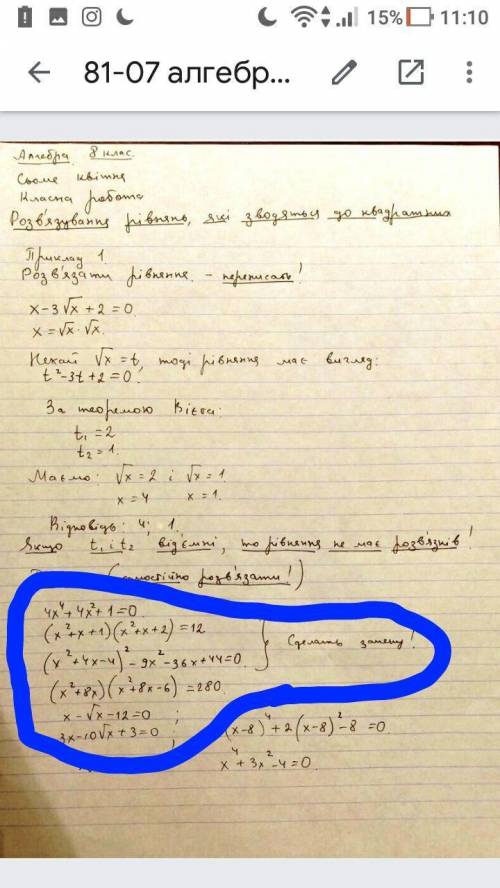 15% 11:10
81-07 алгебр...
Алгебра 8 клас.
Сьоме квітня
Класна робота
Розв'язування рівнянь, які зводяться до квадратних
Приклад 1
Розв'язати рівняння. - переписать!
x-3√x+2=0
x=√x·√x.
Нехай √x=t, тоді рівняння має вигляд:
t²-3t+2=0.
За теоремою Вієта:
t₁=2
t₂=1.
Маємо: √x=2 і √x=1
x=4 x=1.
Відповідь: 4; 1.
Якщо t₁ і t₂ від'ємні, то рівняння не має розв'язків!
(самостійно розв'язати!)
4x⁴+4x²+1=0
(x²+x+1)(x²+x+2)=12
(x²+4x-4)²-9x²-36x+44=0.
Сделать замену!
(x²+8x)(x²+8x-6)=280.
x-√x-12=0 ;
3x-10√x+3=0 ; (x-8)⁴+2(x-8)²-8=0
x⁴+3x²-4=0